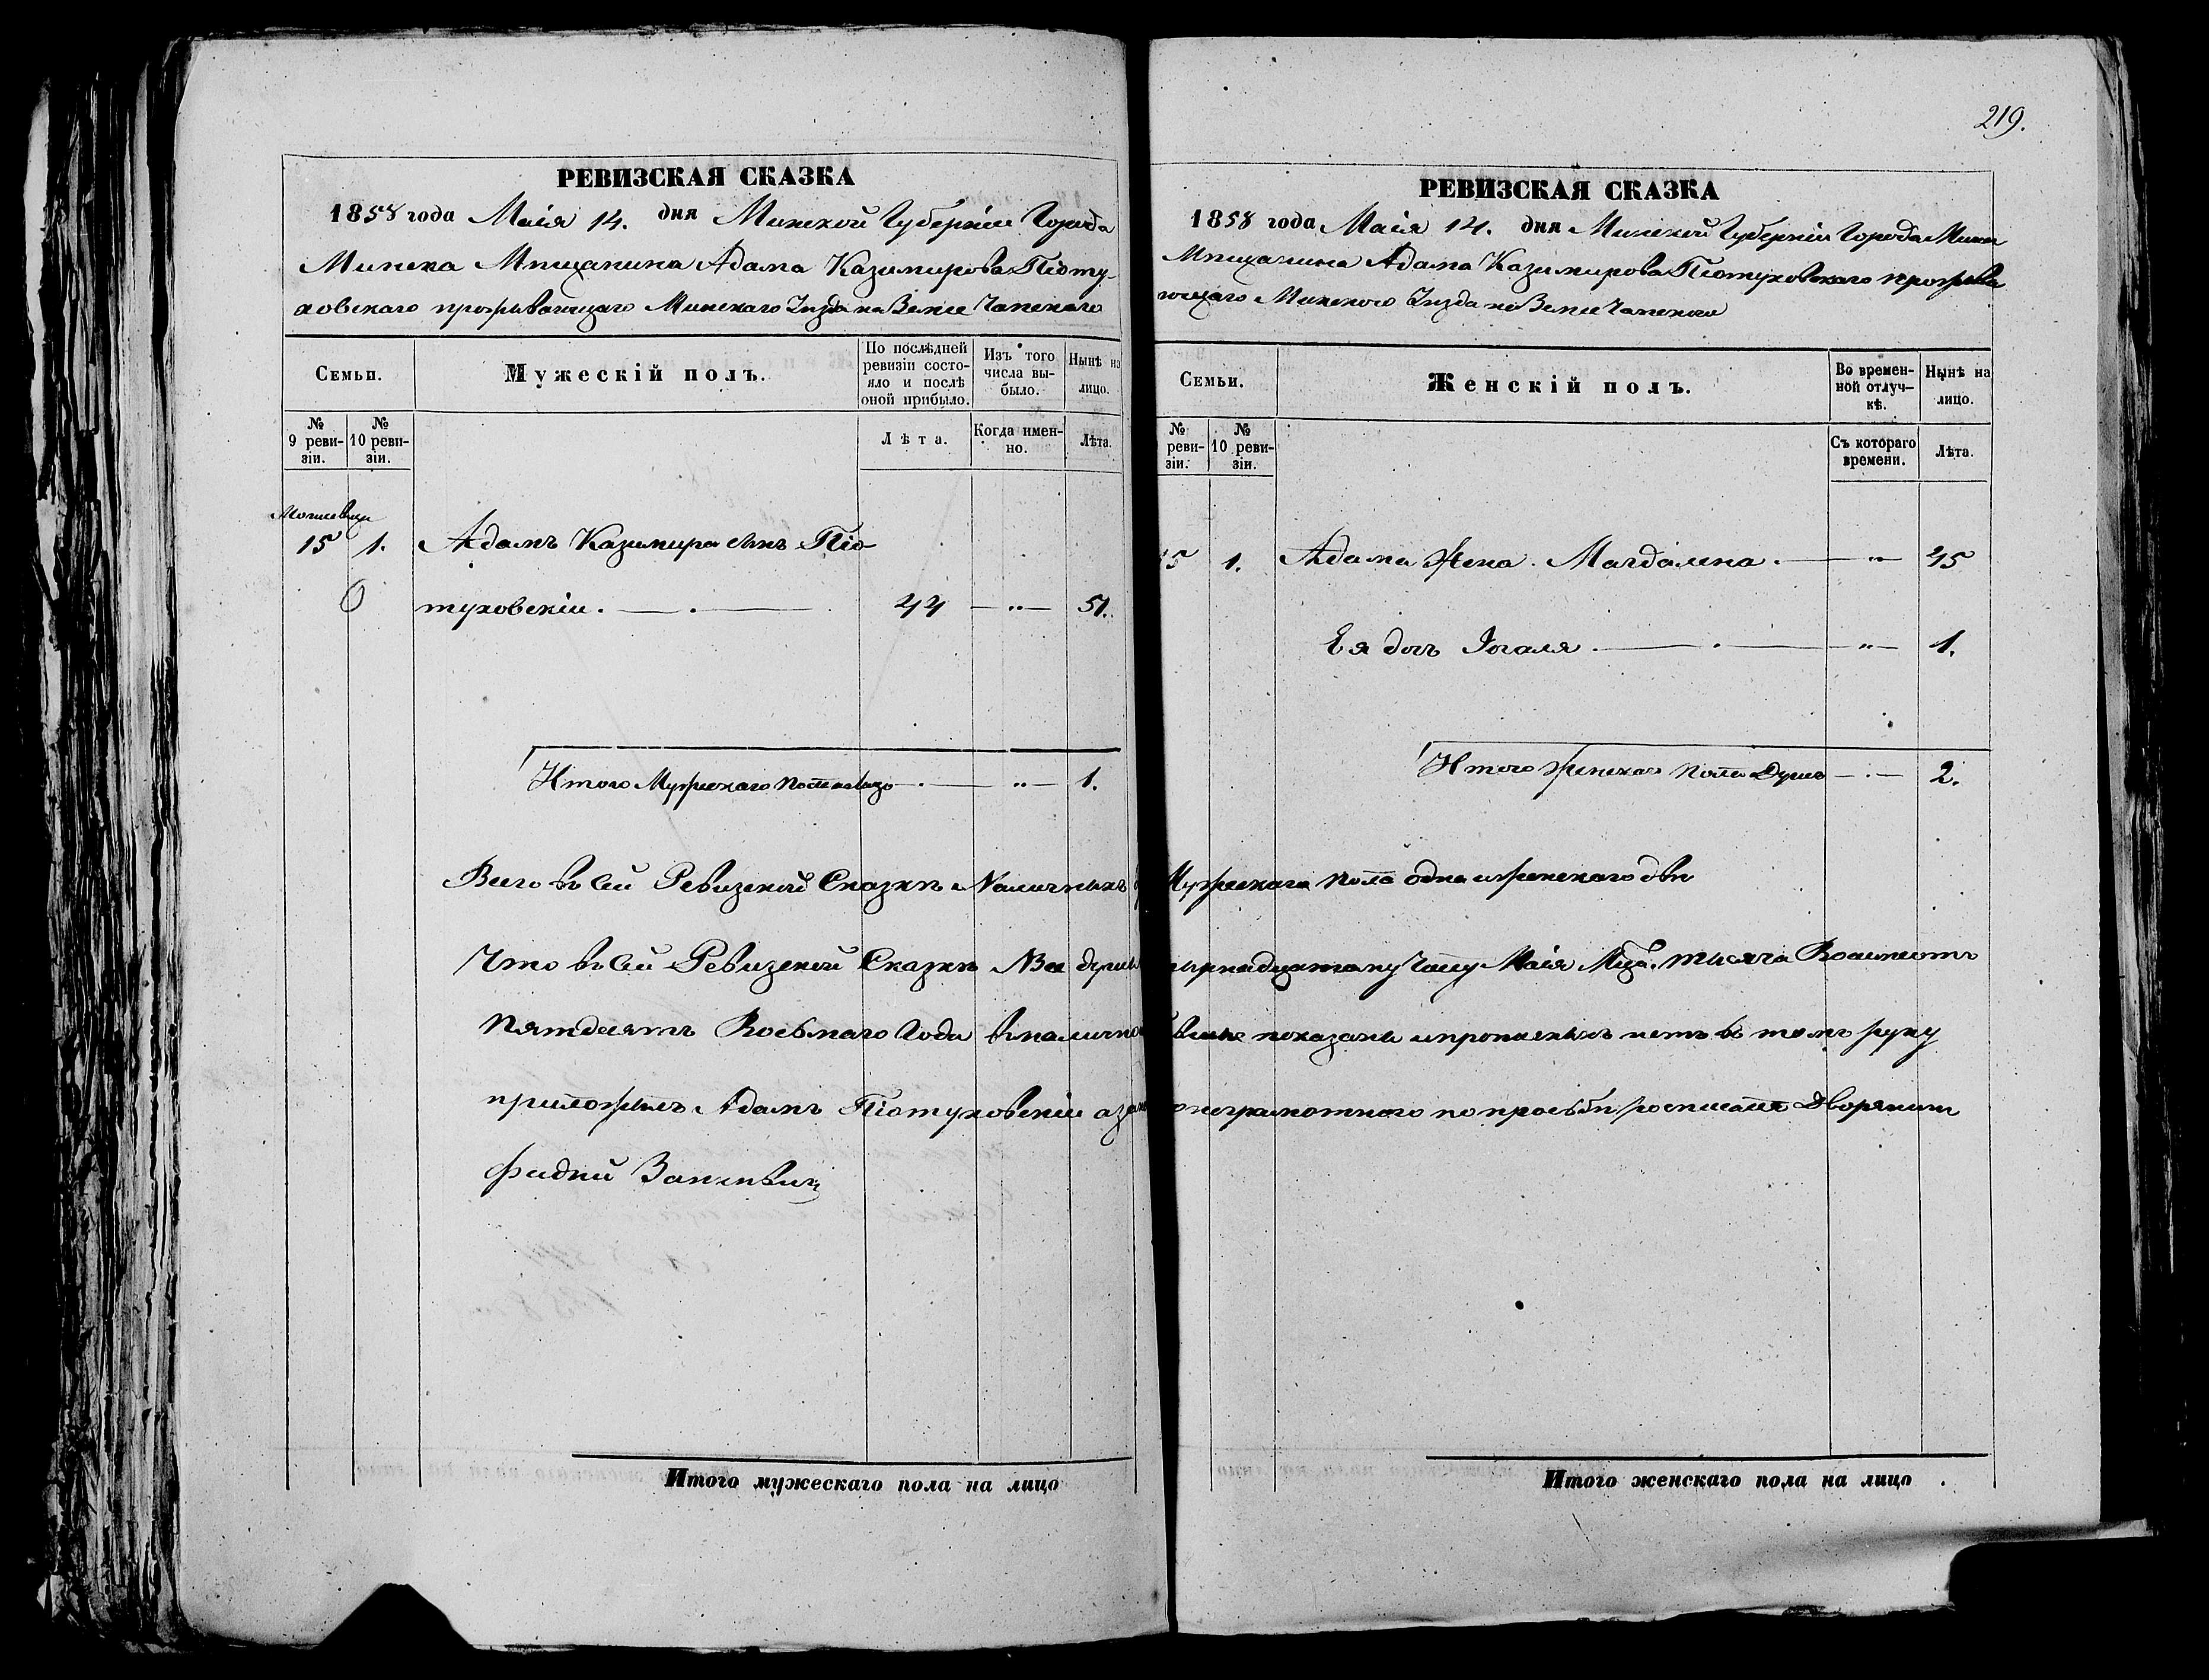 РЕВИЗСКАЯ СКАЗКА
1858 года Маія 14. дня Минской Губерніи Города
Минска Мѣщанина Адама Казимирова Піоту-
ховскаго проживающаго Минскаго Уѣзда на Земле Чапскаго
Семьи.
Мужескій полъ.
По послѣдней ревизіи состояло и послѣ оной прибыло.
Изъ того числа выбыло.
Нынѣ на лицо.
№ 9 ревизіи.
№ 10 ревизіи.
Лѣта.
Когда именно.
Лѣта.
15 1. Адамъ Казимира сынъ Піо
туховскіи. 44 — " — 51.
Итого Мужескаго пола на лицо — " — 1.
Всего въ сей Ревизской Сказкѣ Наличныхъ
Что въ сей Ревизской Сказкѣ Все души
Пятдесятъ Восьмаго Года въ налично
приложилъ Адамъ Піотуховскіи а за
219.
РЕВИЗСКАЯ СКАЗКА
1858 года Маія 14. дня Минской Губерніи Города Минска
Мѣщанина Адама Казимирова Піотуховскаго прожива
ющаго Минского Уѣзда на Земле Чапского
Семьи.
Женскій полъ.
Во временной отлучкѣ.
Нынѣ на лицо.
№ ревизіи.
№ 10 ревизіи.
Съ котораго времени.
Лѣта.
15 1. Адама Жена Магдалина. — " — 45
Ея дочь — " — 1.
Итого Женскаго пола Душъ — . — 2.
Мужескаго пола одна и женскаго двѣ
тырнадцатому Числу Маія Мца. тысяча Восимсотъ
показаны и прописныхъ нетъ въ томъ руку
неграмотного по просьбѣ росписался Дворянинъ
Итого мужескаго пола на лицо
Итого женскаго пола на лицо